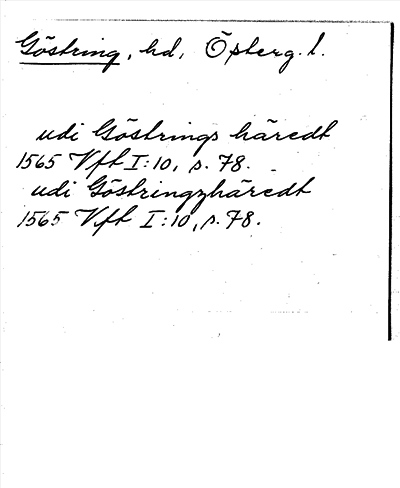 Göstring, hd, Östergl.
udi Göstrings häredt
1565 Vft I:10, s. 78.
udi Göstringzhäredt
1565 Vft I:10, s. 78.